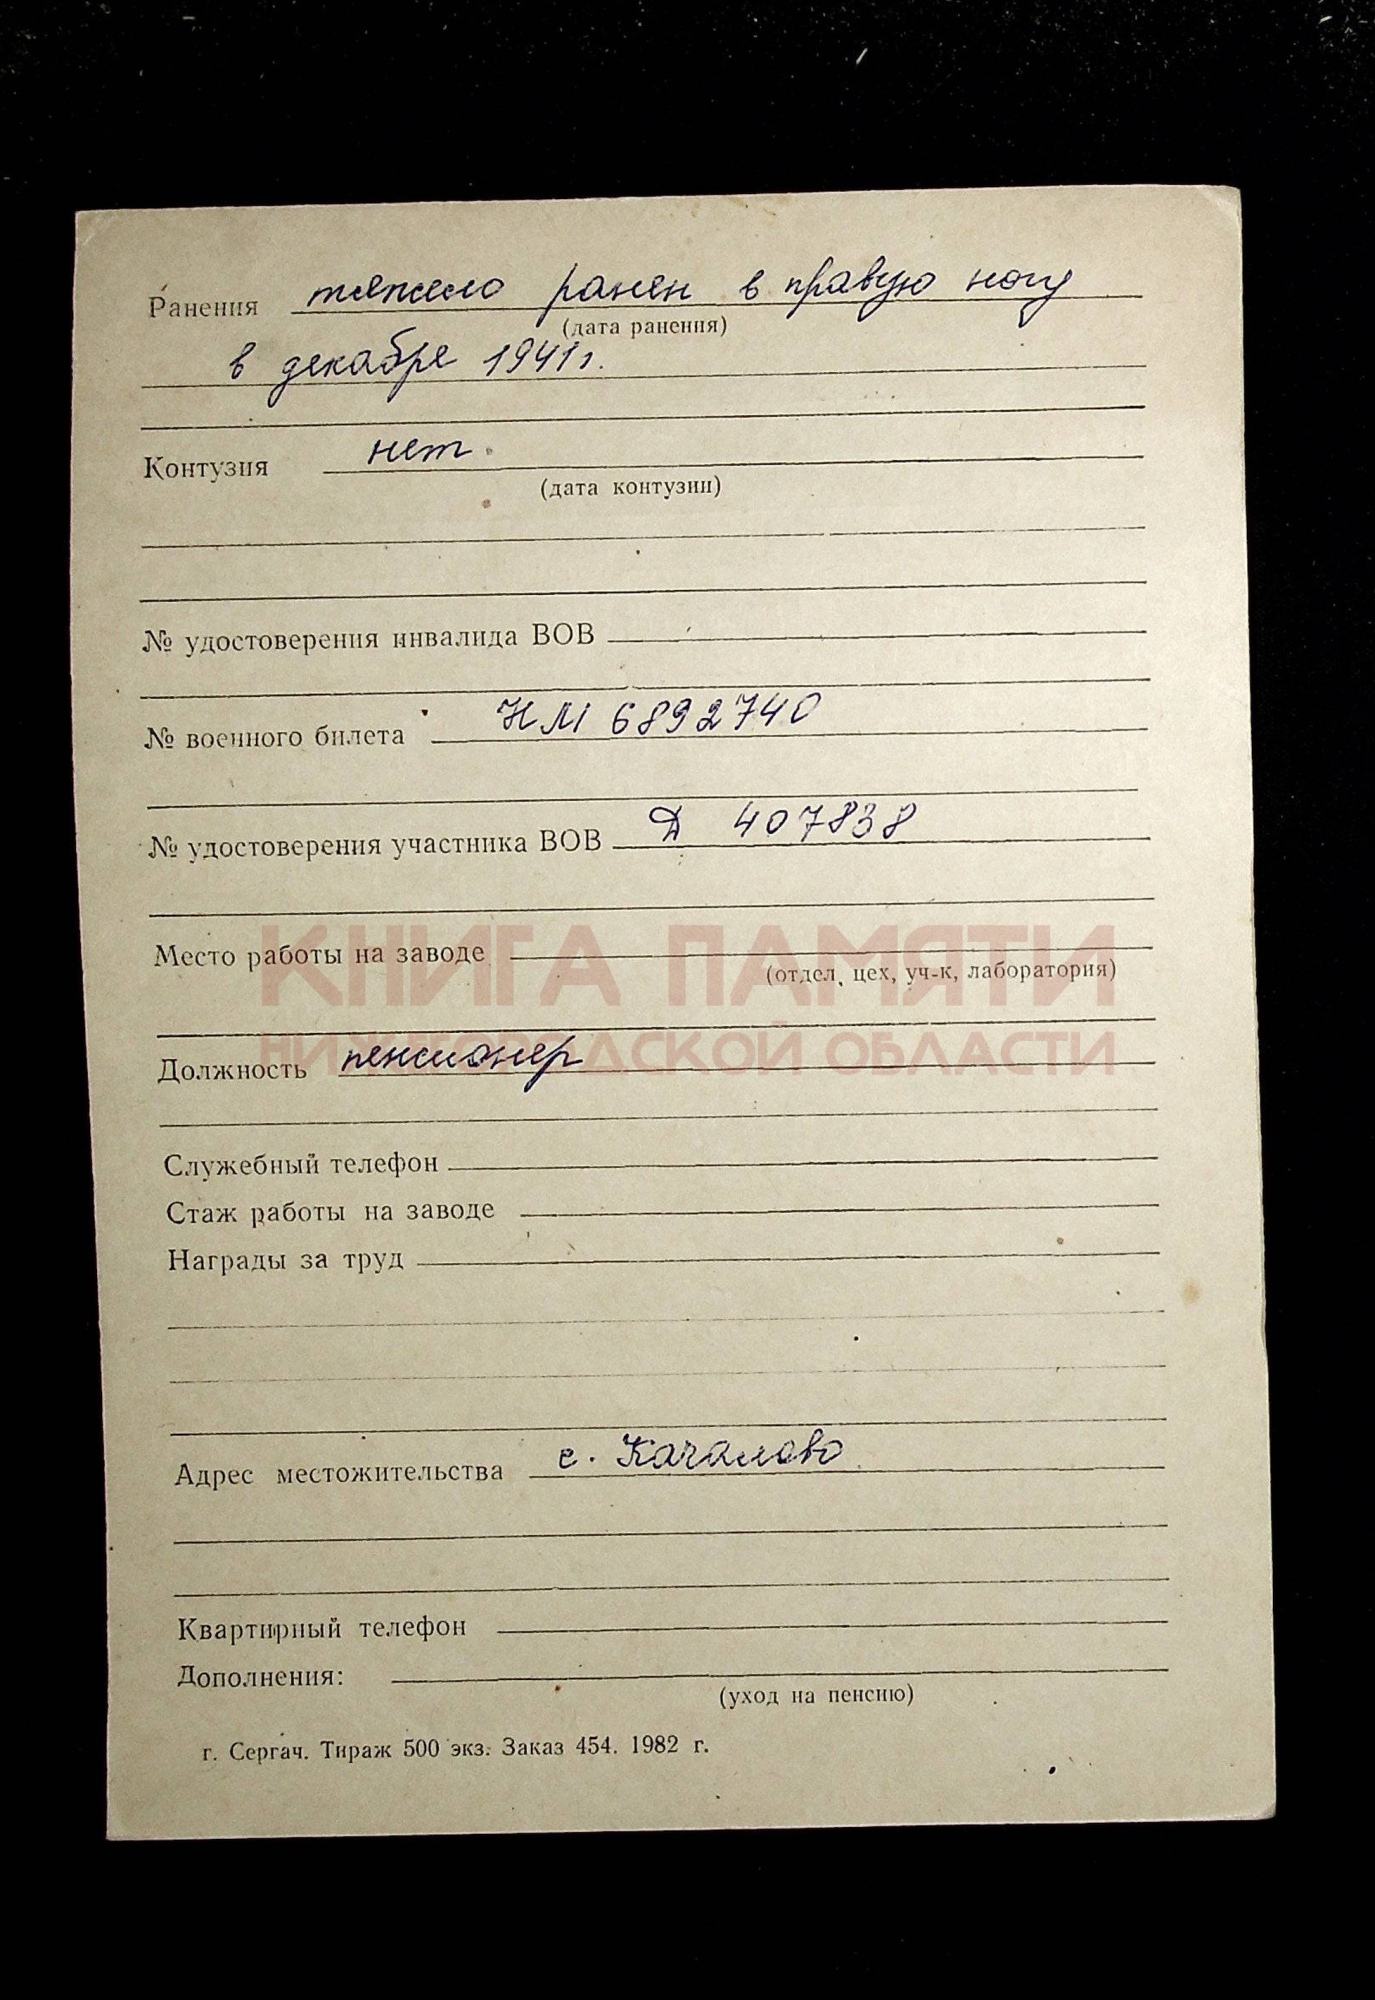 Ранения тяжело ранен в правую ногу
(дата ранения)
в декабре 1941г.
Контузия нет.
(дата контузии)
№ удостоверения инвалида ВОВ
№ военного билета НМ 6892740
№ удостоверения участника ВОВ Д 407838
КНИГА ПАМЯТИ
Место работы на заводе
(отдел, цех, уч-к, лаборатория)
НИЖЕГОРОДСКОЙ ОБЛАСТИ
Должность пенсионер
Служебный телефон
Стаж работы на заводе
Награды за труд
Адрес местожительства с. Качалово
Квартирный телефон
Дополнения:
(уход на пенсию)
г. Сергач. Тираж 500 экз. Заказ 454. 1982 г.